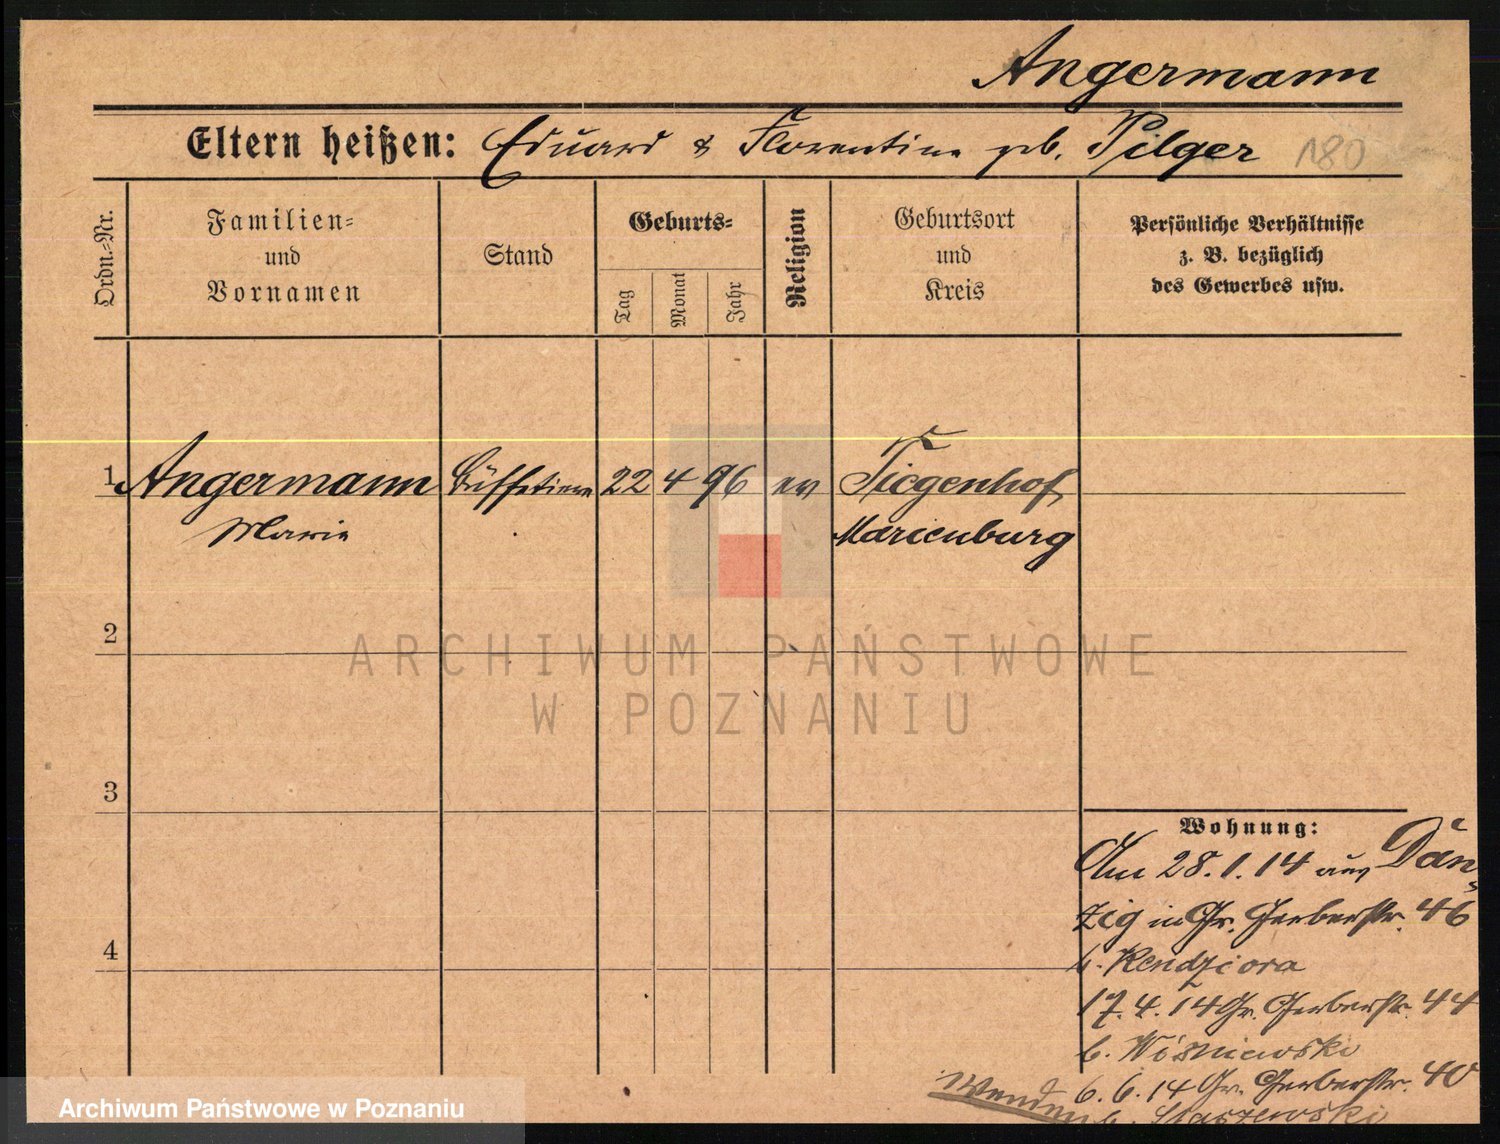 Angermann
Eltern heißen: Eduard & Florentine geb. Pilger 180
Ordn.-Nr.
Familien-
und
Vornamen
Stand
Geburts-
Tag
Monat
Jahr
Religion
Geburtsort
und
Kreis
Persönliche Verhältnisse
z. B. bezüglich
des Gewerbes usw.
1 Angermann Büffetiere 22 4 96 ev Tiegenhof
Marie Marienburg
2
ARCHIWUM PAŃSTWOWE
W POZNANIU
3
Wohnung:
Am 28.1.14 aus Dan-
4
zig in Gr. Gerberstr. 46
b. Kendziora
17.4.14 Gr. Gerberstr. 44
b. Wisniewski
6.6.14 Gr. Gerberstr. 40
Wenden b. Staszewski
Archiwum Państwowe w Poznaniu